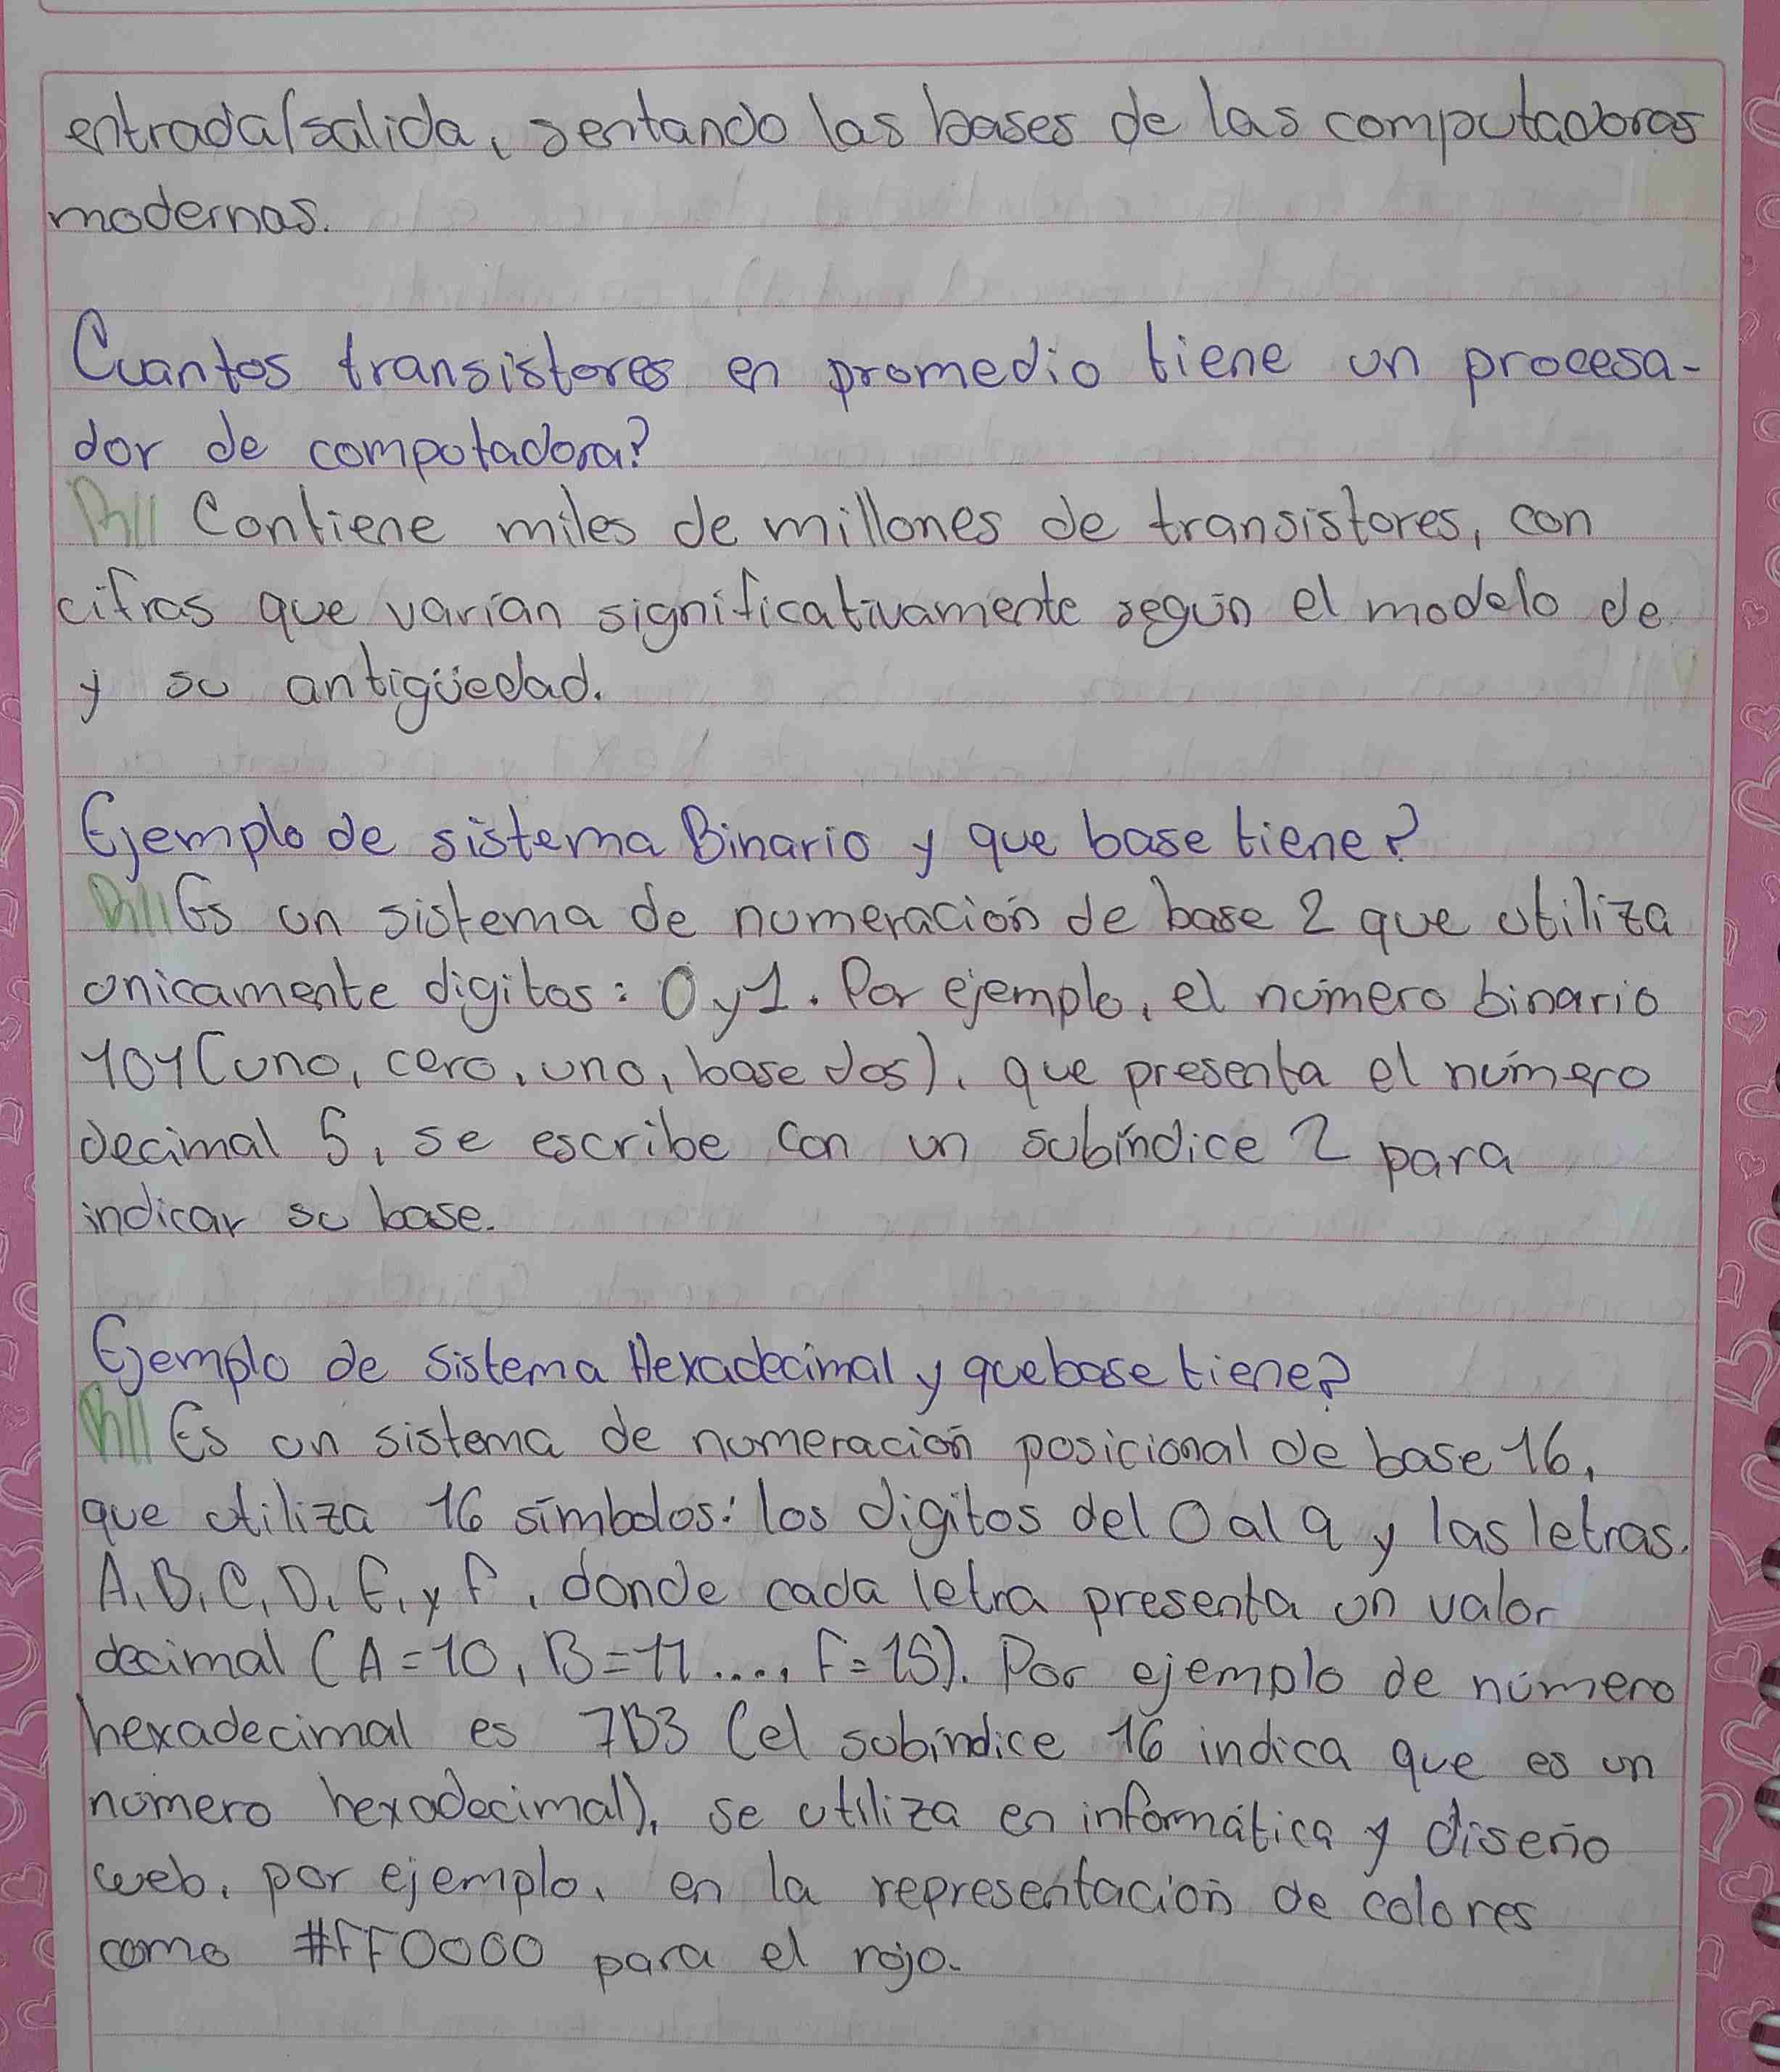 entrada/salida, sentando las bases de las computadoras
modernas.
Cuantos transistores en promedio tiene un procesa-
dor de computadora?
R// Contiene miles de millones de transistores, con
cifras que varían significativamente según el modelo de
y su antigüedad.
Ejemplo de sistema Binario y que base tiene?
R// Es un sistema de numeración de base 2 que utiliza
unicamente digitos: 0 y 1. Por ejemplo, el número binario
101 (uno, cero, uno, base dos), que presenta el número
decimal 5, se escribe con un subíndice 2 para
indicar su base.
Ejemplo de sistema Hexadecimal y que base tiene?
R// Es un sistema de numeración posicional de base 16,
que utiliza 16 símbolos: los digitos del 0 al 9 y las letras.
A, B, C, D, E, y F, donde cada letra presenta un valor
decimal (A=10, B=11...., F=15). Por ejemplo de número
hexadecimal es 7B3 (el subíndice 16 indica que es un
número hexadecimal), se utiliza en informática y diseño
web, por ejemplo, en la representación de colores
como #FF0000 para el rojo.